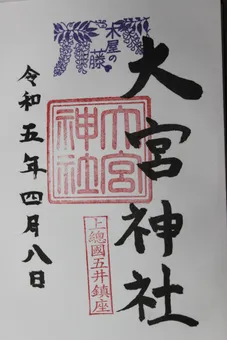 大宮神社
木屋の藤
大宮神社
上總國五井鎮座
令和五年四月八日